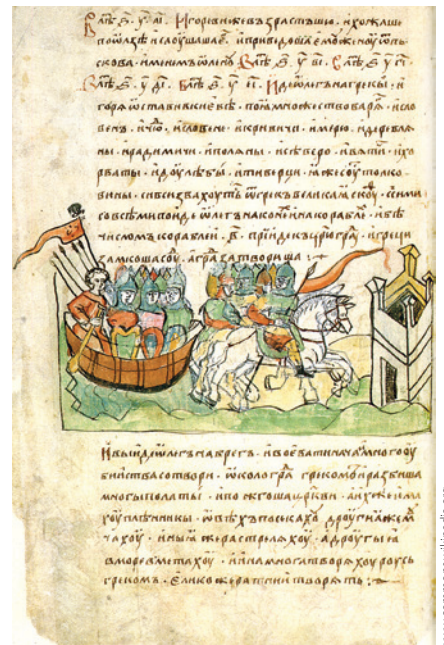 В лѣⷮ ѕ҃. у҃. аі҃. Игореви же възрастъшю. и хожаше
по ѡлзѣ и слоушаше. и приведоша емоу женоу ѿ пь
скова. именемъ ѡленоу. В лѣⷮ ѕ҃. у҃ ві҃. В лѣⷮ ѕ҃ у҃ гі҃.
В лѣⷮ ѕ҃. у҃ ді҃. В лѣⷮ ѕ҃. у҃ еі҃. Иде ѡлегъ на грекы. и
горѧ ѡстави в киевѣ. поѧ множество варѧ. и сло
венъ. и чю. и словене. и кривичи. и мерю. и деревлѧ
ны. и радимичи. и полѧны. и сѣверо. и вѧти. и хо
рваты. и доулѣбы. и тиверци. иже соуть толко
вины. си вси звахоуть ѿ грекъ великаѧ скоуⷴ. с сими
со всеми поиде ѡлегъ на конѣ и на корабле. и бѣ
числомъ кораблеи. в҃. прииде къ цр҃юграⷣ. и греци
замкоша соуⷣ. а граⷣ затвориша
И выиде ѡлегъ на брегъ. и воевати нача. и много оу
бииства сотвори. ѡколо граⷣ грекомъ. и разбиша
многы полаты. и пожгоша ц҃ркви. а ихже има
хоу плѣнникы. ѡвѣхъ посекахоⷹ дроугиа же моу
чахоу. иныа же растрелѧхоу. а дроугыа
в море вметахоу. и ина многа творѧхоу роусь
грекомъ. елико же ратнии творѧть